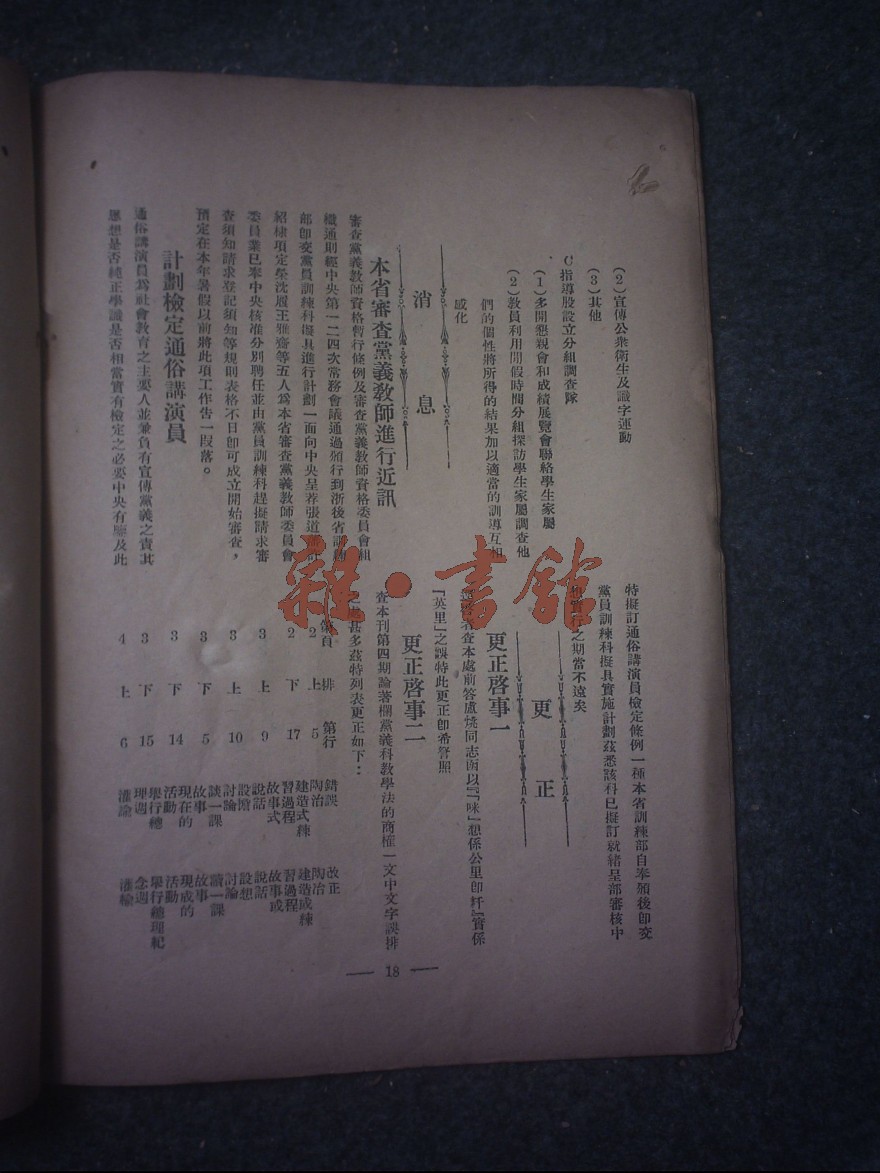 (2)宣傳公衆衛生及識字運動
(3)其他
C指導股設立分組調查隊
(1)多開懇親會和成績展覽會聯絡學生家屬
(2)敎員利用閒假時間分組探訪學生家屬調查他
們的個性將所得的結果加以適當的訓導互相
感化
消息
本省審査黨義敎師進行近訊
審査黨義敎師資格暫行條例及審査黨義敎師資格委員會組
織通則經中央第一二四次常務會議通過頒行到浙後省訓練
部卽交黨員訓練科擬具進行計劃一面向中央呈荐張道藩許
紹棣項定榮沈履王雅齋等五人爲本省審査黨義敎師委員會
委員業已奉中央核准分別聘任並由黨員訓練科趕擬請求審
查須知請求登記須知等規則表格不日卽可成立開始審査，
預定在本年暑假以前將此項工作告一段落。
計劃檢定通俗講演員
通俗講演員爲社會敎育之主要人並兼負有宣傳黨義之責其
思想是否純正學識是否相當實有檢定之必要中央有鑒及此
特擬訂通俗講演員檢定條例一種本省訓練部自奉頒後卽交
黨員訓練科擬具實施計劃茲悉該科已擬訂就緒呈部審核中
想實行之期當不遠矣
更正
更正啓事一
逕啓者查本處前答盧燒同志函以『味』想係公里卽粁『實係
『英里』之誤特此更正卽希詧照
更正啓事二
查本刊第四期論著欄黨義科敎學法的商榷一文中文字誤排
之處甚多茲特列表更正如下：
第頁 排 第行 錯誤 改正
2 上 5 陶治 陶冶
2 下 17 建造式練習過程 建造成練習過程
3 上 9 故事式說話 故事或說話
3 上 10 設增討論 設想討論
3 下 5 談一課故事 讀一課故事
3 下 14 現在的活動 現成的活動
3 下 15 舉行總理週 舉行總理紀念週
4 上 6 灌論 灌輸
— 18 —
雜·書館